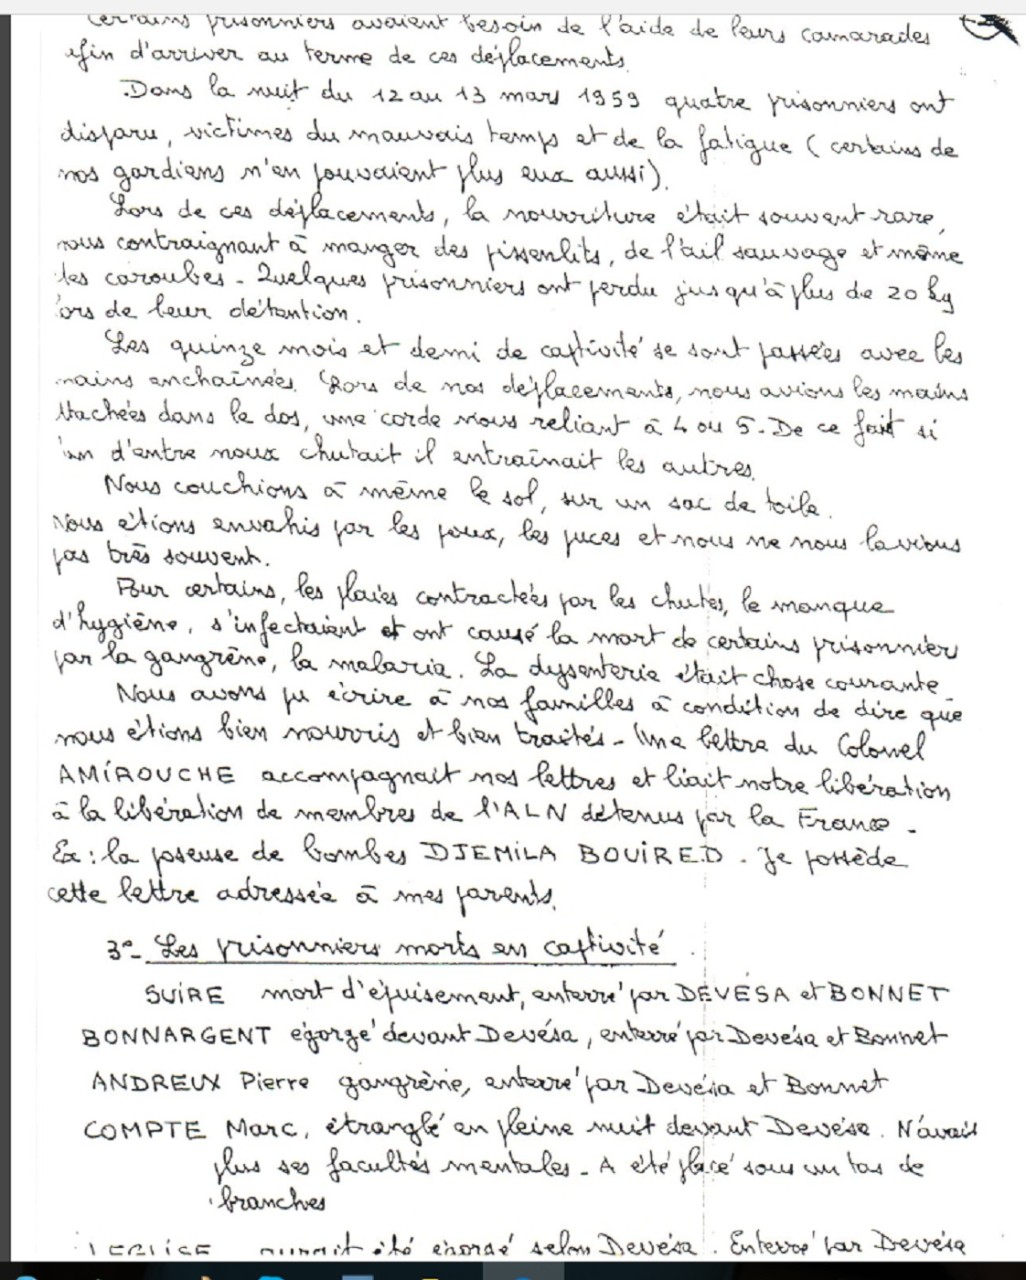 Certains prisonniers avaient besoin de l'aide de leurs camarades
afin d'arriver au terme de ces déplacements.
Dans la nuit du 12 au 13 mars 1959 quatre prisonniers ont
disparu, victimes du mauvais temps et de la fatigue (certains de
nos gardiens n'en pouvaient plus eux aussi).
Lors de ces déplacements, la nourriture était souvent rare,
nous contraignant à manger des pissenlits, de l'ail sauvage et même
des caroubes - Quelques prisonniers ont perdu jusqu'à plus de 20 kg
lors de leur détention.
Les quinze mois et demi de captivité se sont passées avec les
mains enchaînées. Lors de nos déplacements, nous avions les mains
attachées dans le dos, une corde nous reliant à 4 ou 5. De ce fait si
l'un d'entre noux chutait il entraînait les autres.
Nous couchions à même le sol, sur un sac de toile.
Nous étions envahis par les poux, les puces et nous ne nous lavions
pas très souvent.
Pour certains, les plaies contractées par les chutes, le manque
d'hygiène, s'infectaient et ont causé la mort de certains prisonniers
par la gangrène, la malaria. La dysenterie était chose courante
Nous avons pu écrire à nos familles à condition de dire que
nous étions bien nourris et bien traités - Une lettre du Colonel
AMIROUCHE accompagnait nos lettres et liait notre libération
à la libération de membres de l'ALN détenus par la France -
Ex : la poseuse de bombes DJEMILA BOUIRED. Je possède
cette lettre adressée à mes parents.
3° - Les prisonniers morts en captivité.
SUIRE mort d'épuisement, enterré par DEVÉSA et BONNET
BONNARGENT égorgé devant Devésa, enterré par Devésa et Bonnet
ANDREUX Pierre gangrène, enterré par Devésa et Bonnet
COMPTE Marc, étranglé en pleine nuit devant Devésa. N'avait
plus ses facultés mentales - A été placé sous un tas de
branches
aurait été égorgé selon Devésa. Enterré par Devésa